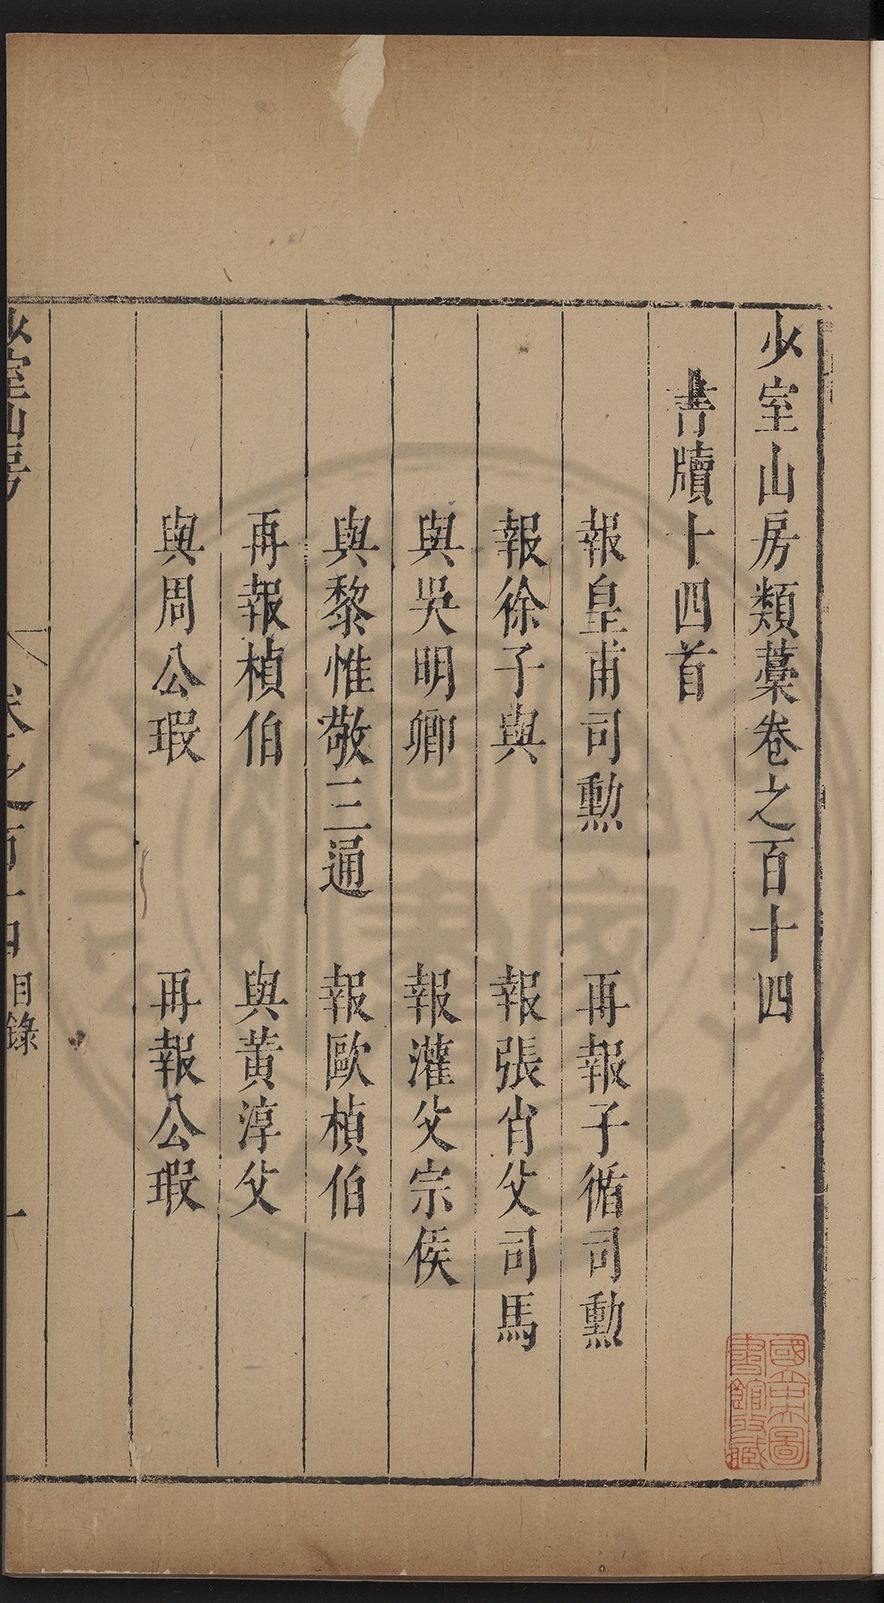 少室山房類藁卷之百十四
書牘十四首
報皇甫司勳
再報子循司勳
報徐子與
報張肖父司馬
與吳明卿
報灌父宗侯
與黎惟敬三通
報歐楨伯
再報楨伯
與黃淳父
與周公瑕
再報公瑕
少室山房
卷之百十四
目錄
一
國立中央圖書館收藏